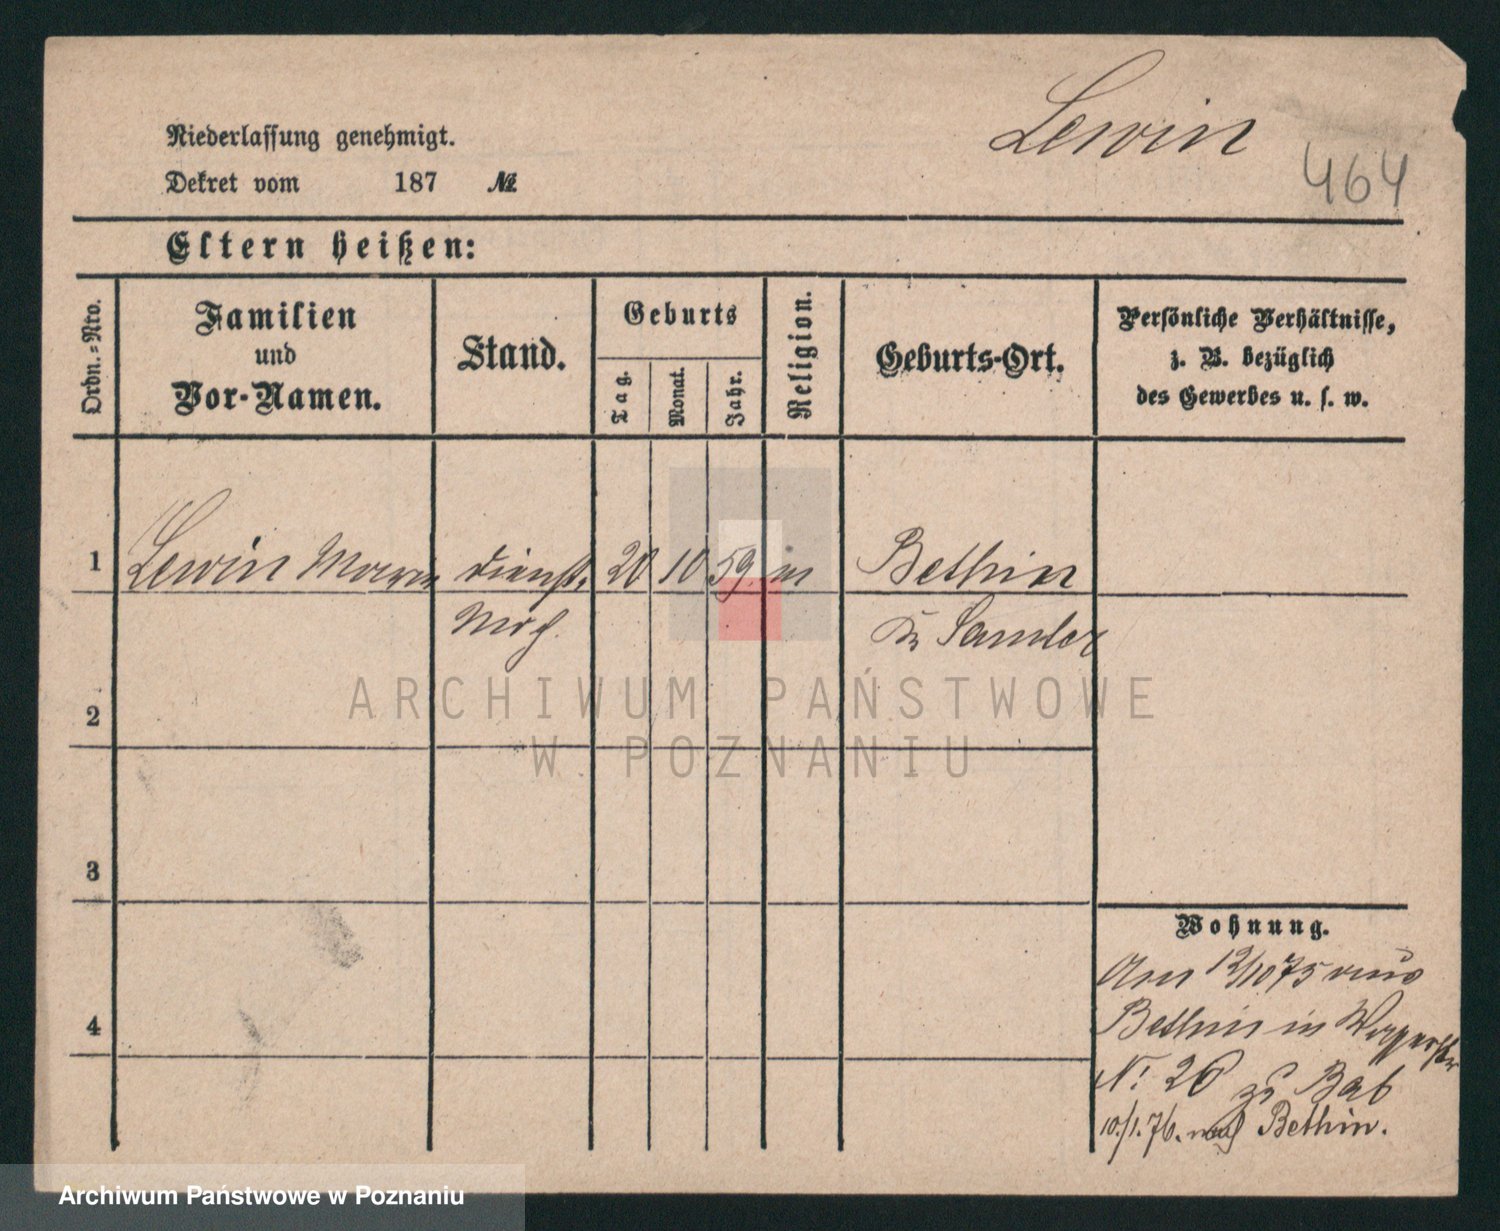 Lewin
464
Niederlassung genehmigt.
Dekret vom 187 №
Eltern heißen:
Ordn.=Nro.
Familien
und
Vor-Namen.
Stand.
Geburts
Tag.
Monat.
Jahr.
Religion.
Geburts-Ort.
Persönliche Verhältnisse,
z. B. bezüglich
des Gewerbes u. s. w.
1 Lewin Marie dienst. 20 10 59. m Bethin
Kr Samter
2
3
4
Wohnung.
Am 12/10 75 aus
Bethin in Wasserstr
N: 26 zu Bab
10./1. 76. nach Bethin.
ARCHIWUM PAŃSTWOWE
W POZNANIU
Archiwum Państwowe w Poznaniu